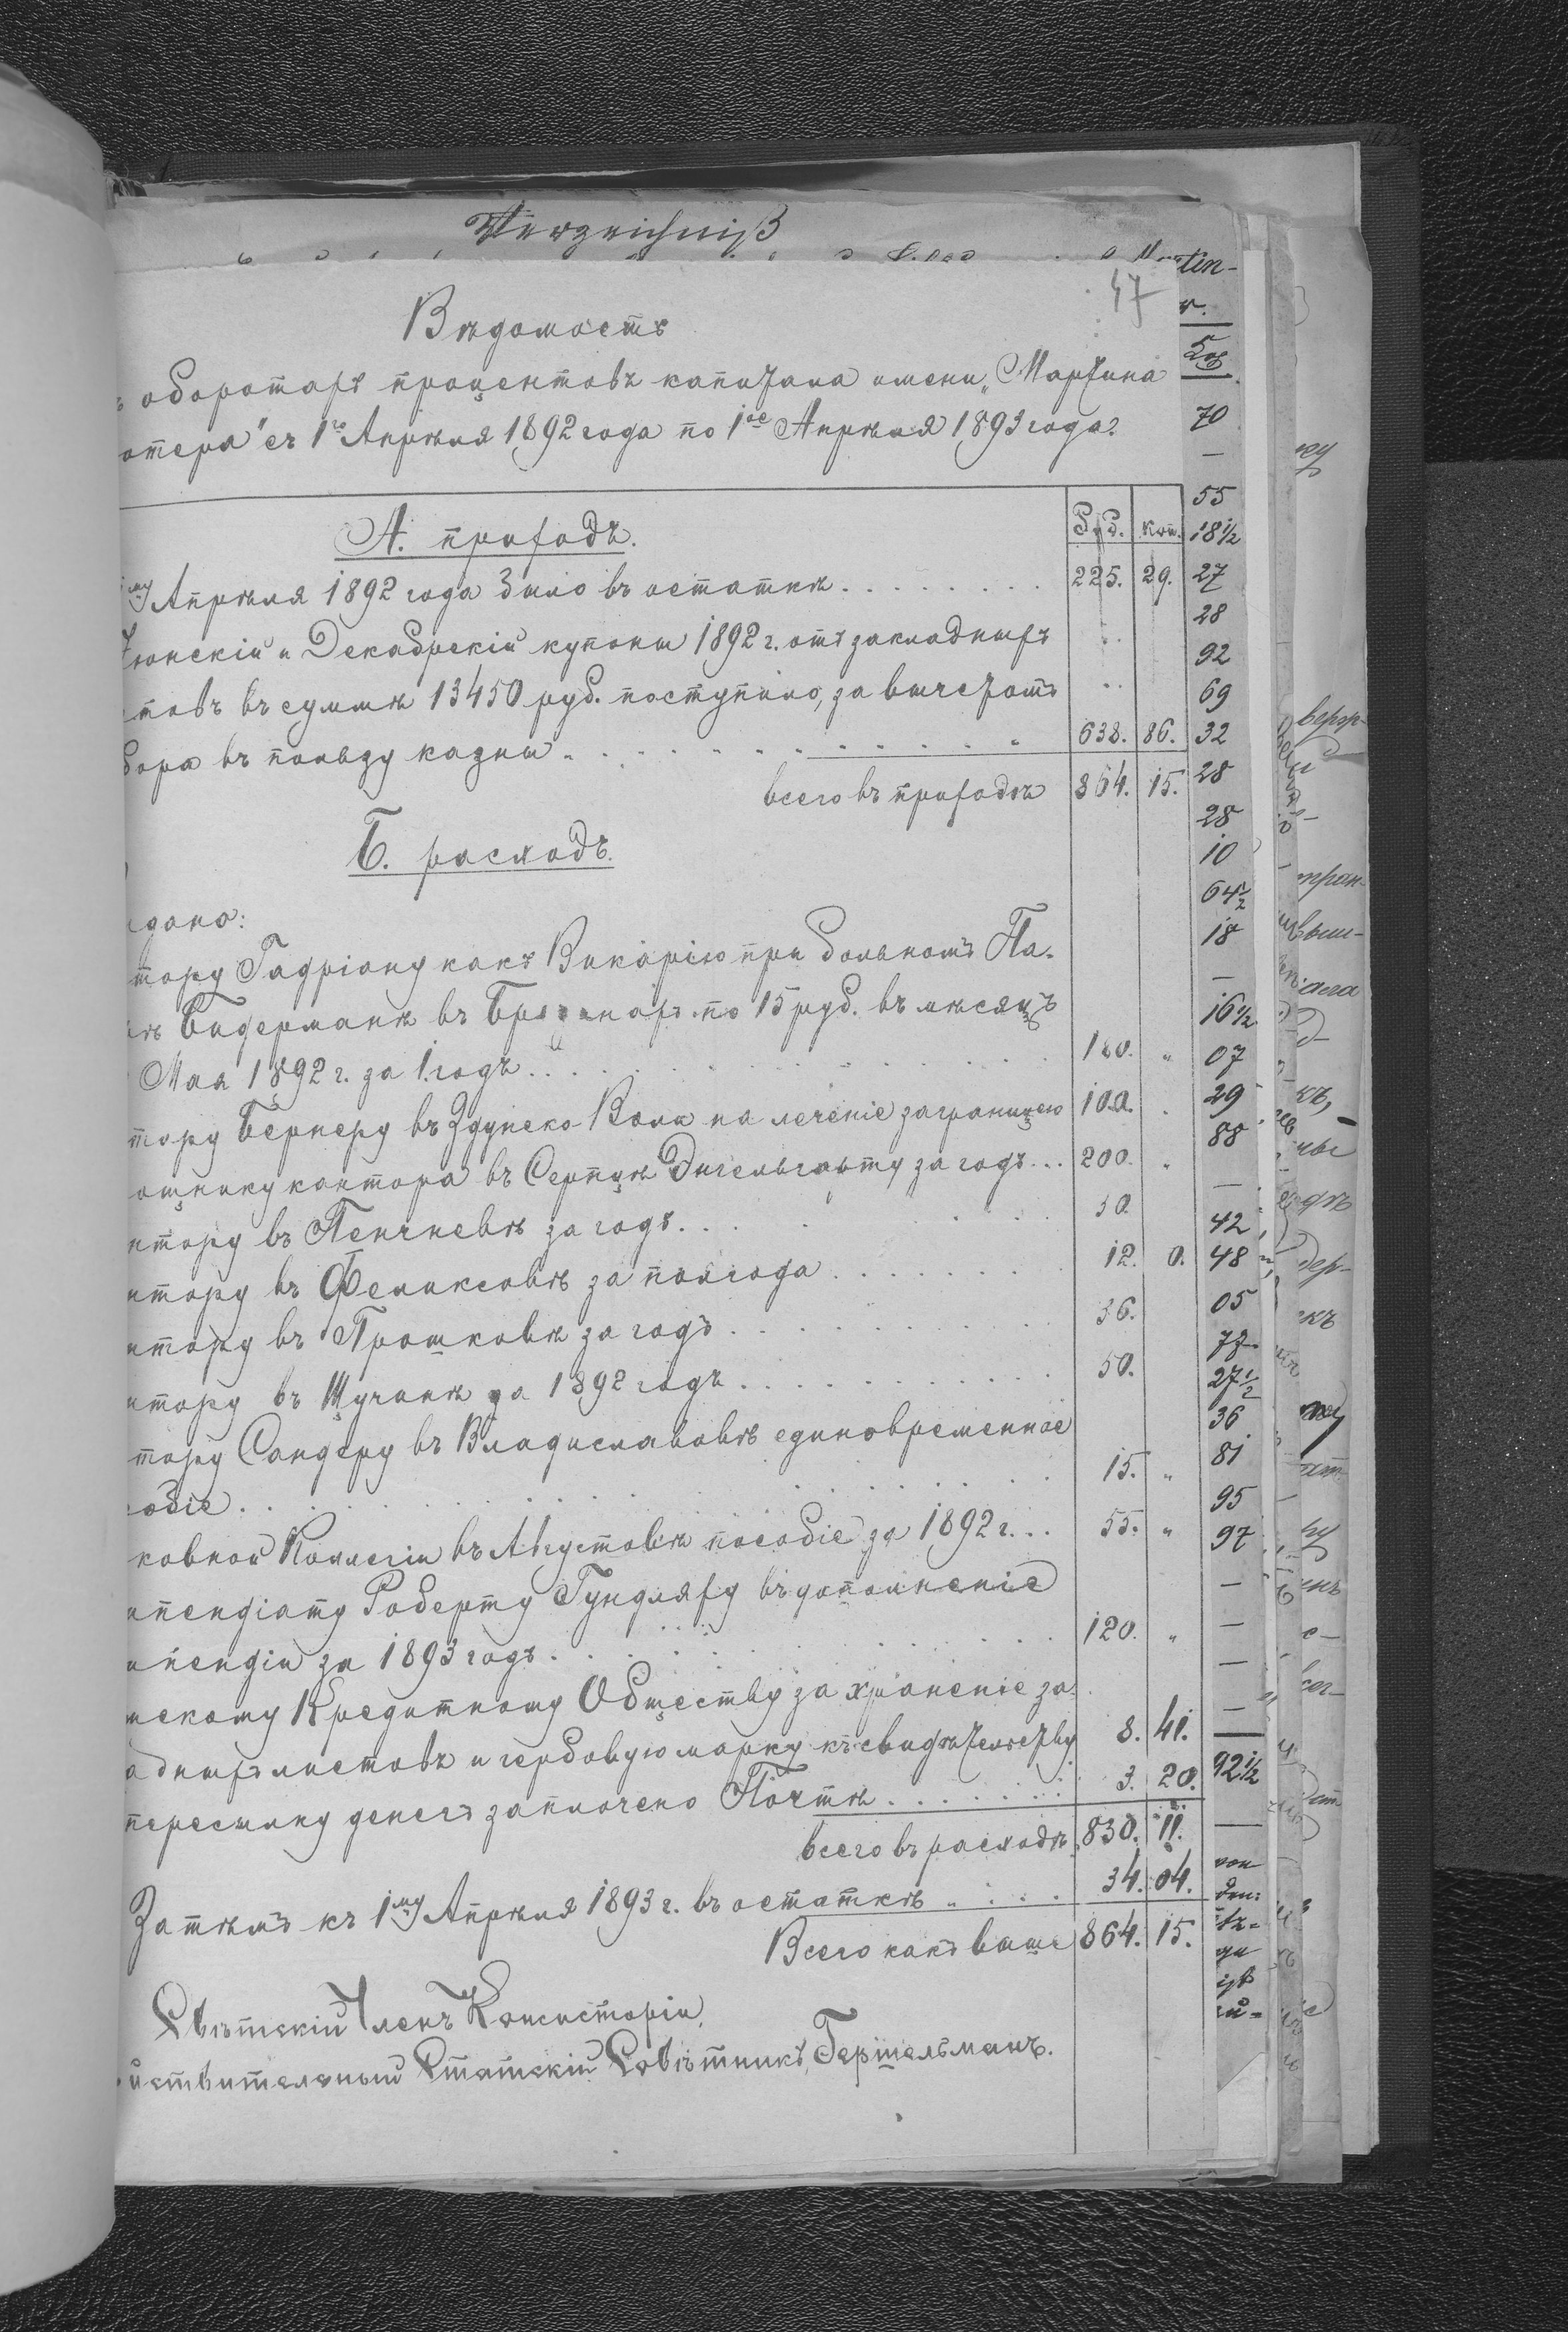 Verzeichniß
47
Вѣдомость
оборотахъ процентовъ капитала имени „Мартина
отера" съ 1го Апрѣля 1892 года по 1ое Апрѣля 1893 года.
Руб. Коп.
А. приходъ.
му Апрѣля 1892 года было въ остаткѣ . . . . . . . . . 225. 29.
Іюнскій и Декабрскій купоны 1892 г. отъ закладныхъ
товъ въ суммѣ 13450 руб. поступило, за вычетомъ
бора въ пользу казны . . . . . . . . . . 638. 86.
всего въ приходѣ 864. 15.
Б. расходъ.
дано:
тору Гадріану какъ Викарію при больномъ Па-
рѣ Бидерманѣ въ по 15 руб. въ мѣсяцъ
Мая 1892 г. за 1. годъ . . . . . . . . . 180. "
тору Бернеру въ Здунско-Воли на леченіе заграницею 100.
ощнику кантора въ Серпцѣ Энгельгардту за годъ . . . 200. "
нтору въ Пенчневѣ за годъ . . . . . . . . 30.
нтору въ Феликсовѣ за полгода . . . . . . . . 12. 0.
нтору въ Прошковѣ за годъ . . . . . . . . . 36.
нтору въ Щучинѣ за 1892 годъ . . . . . . . . . 50.
тору Сандеру въ Владиславовѣ единовременное
обіе . . . . . . . . . . . . . 15. "
ковной Коллегіи въ Августовѣ пособіе за 1892 г. . . 55. "
ипендіату Роберту Гундляху въ дополненіе
ипендіи за 1893 годъ . . . . . . . . . 120. "
мскому Кредитному Обществу за храненіе за-
адныхъ листовъ и гербовую марку къ свидѣтельству 8. 41.
пересылку денегъ заплочено Почтѣ . . . . . . . 3. 20.
всего въ расходѣ 830. 11.
Затѣмъ къ 1му Апрѣля 1893 г. въ остаткѣ . . . . 34. 04.
Всего какъ выше 864. 15.
Свѣтскій Членъ Консисторіи,
йствительный Статскій Совѣтникъ, Гершельманъ.
70
—
55
18½
27
28
92
69
32
28
28
10
64½
18
—
16½
07
29
88
—
42
48
05
77
27½
36
81
95
97
—
—
—
—
92½